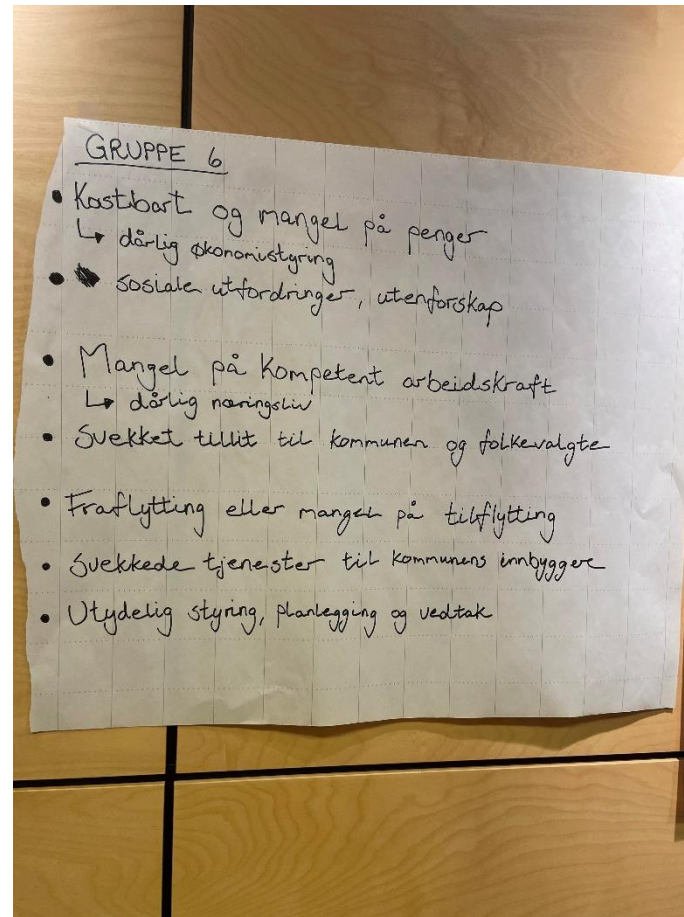 GRUPPE 6
• Kostbart og mangel på penger
↳ dårlig økonomistyring
• sosiale utfordringer, utenforskap
• Mangel på kompetent arbeidskraft
↳ dårlig næringsliv
• Svekket tillit til kommunen og folkevalgte
• Fraflytting eller mangel på tilflytting
• Svekkede tjenester til kommunens innbyggere
• Utydelig styring, planlegging og vedtak